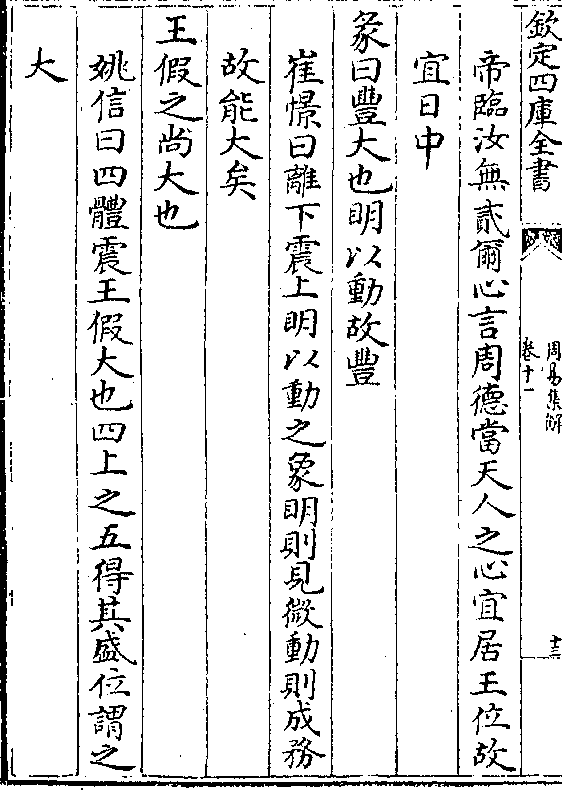 欽定四庫全書
周易集解
卷十一
十三
帝臨汝無貳爾心言周德當天人之心宜居王位故
宜日中
彖曰豐大也明以動故豐
崔憬曰離下震上明以動之象明則見微動則成務
故能大矣
王假之尚大也
姚信曰四體震王假大也四上之五得其盛位謂之
大